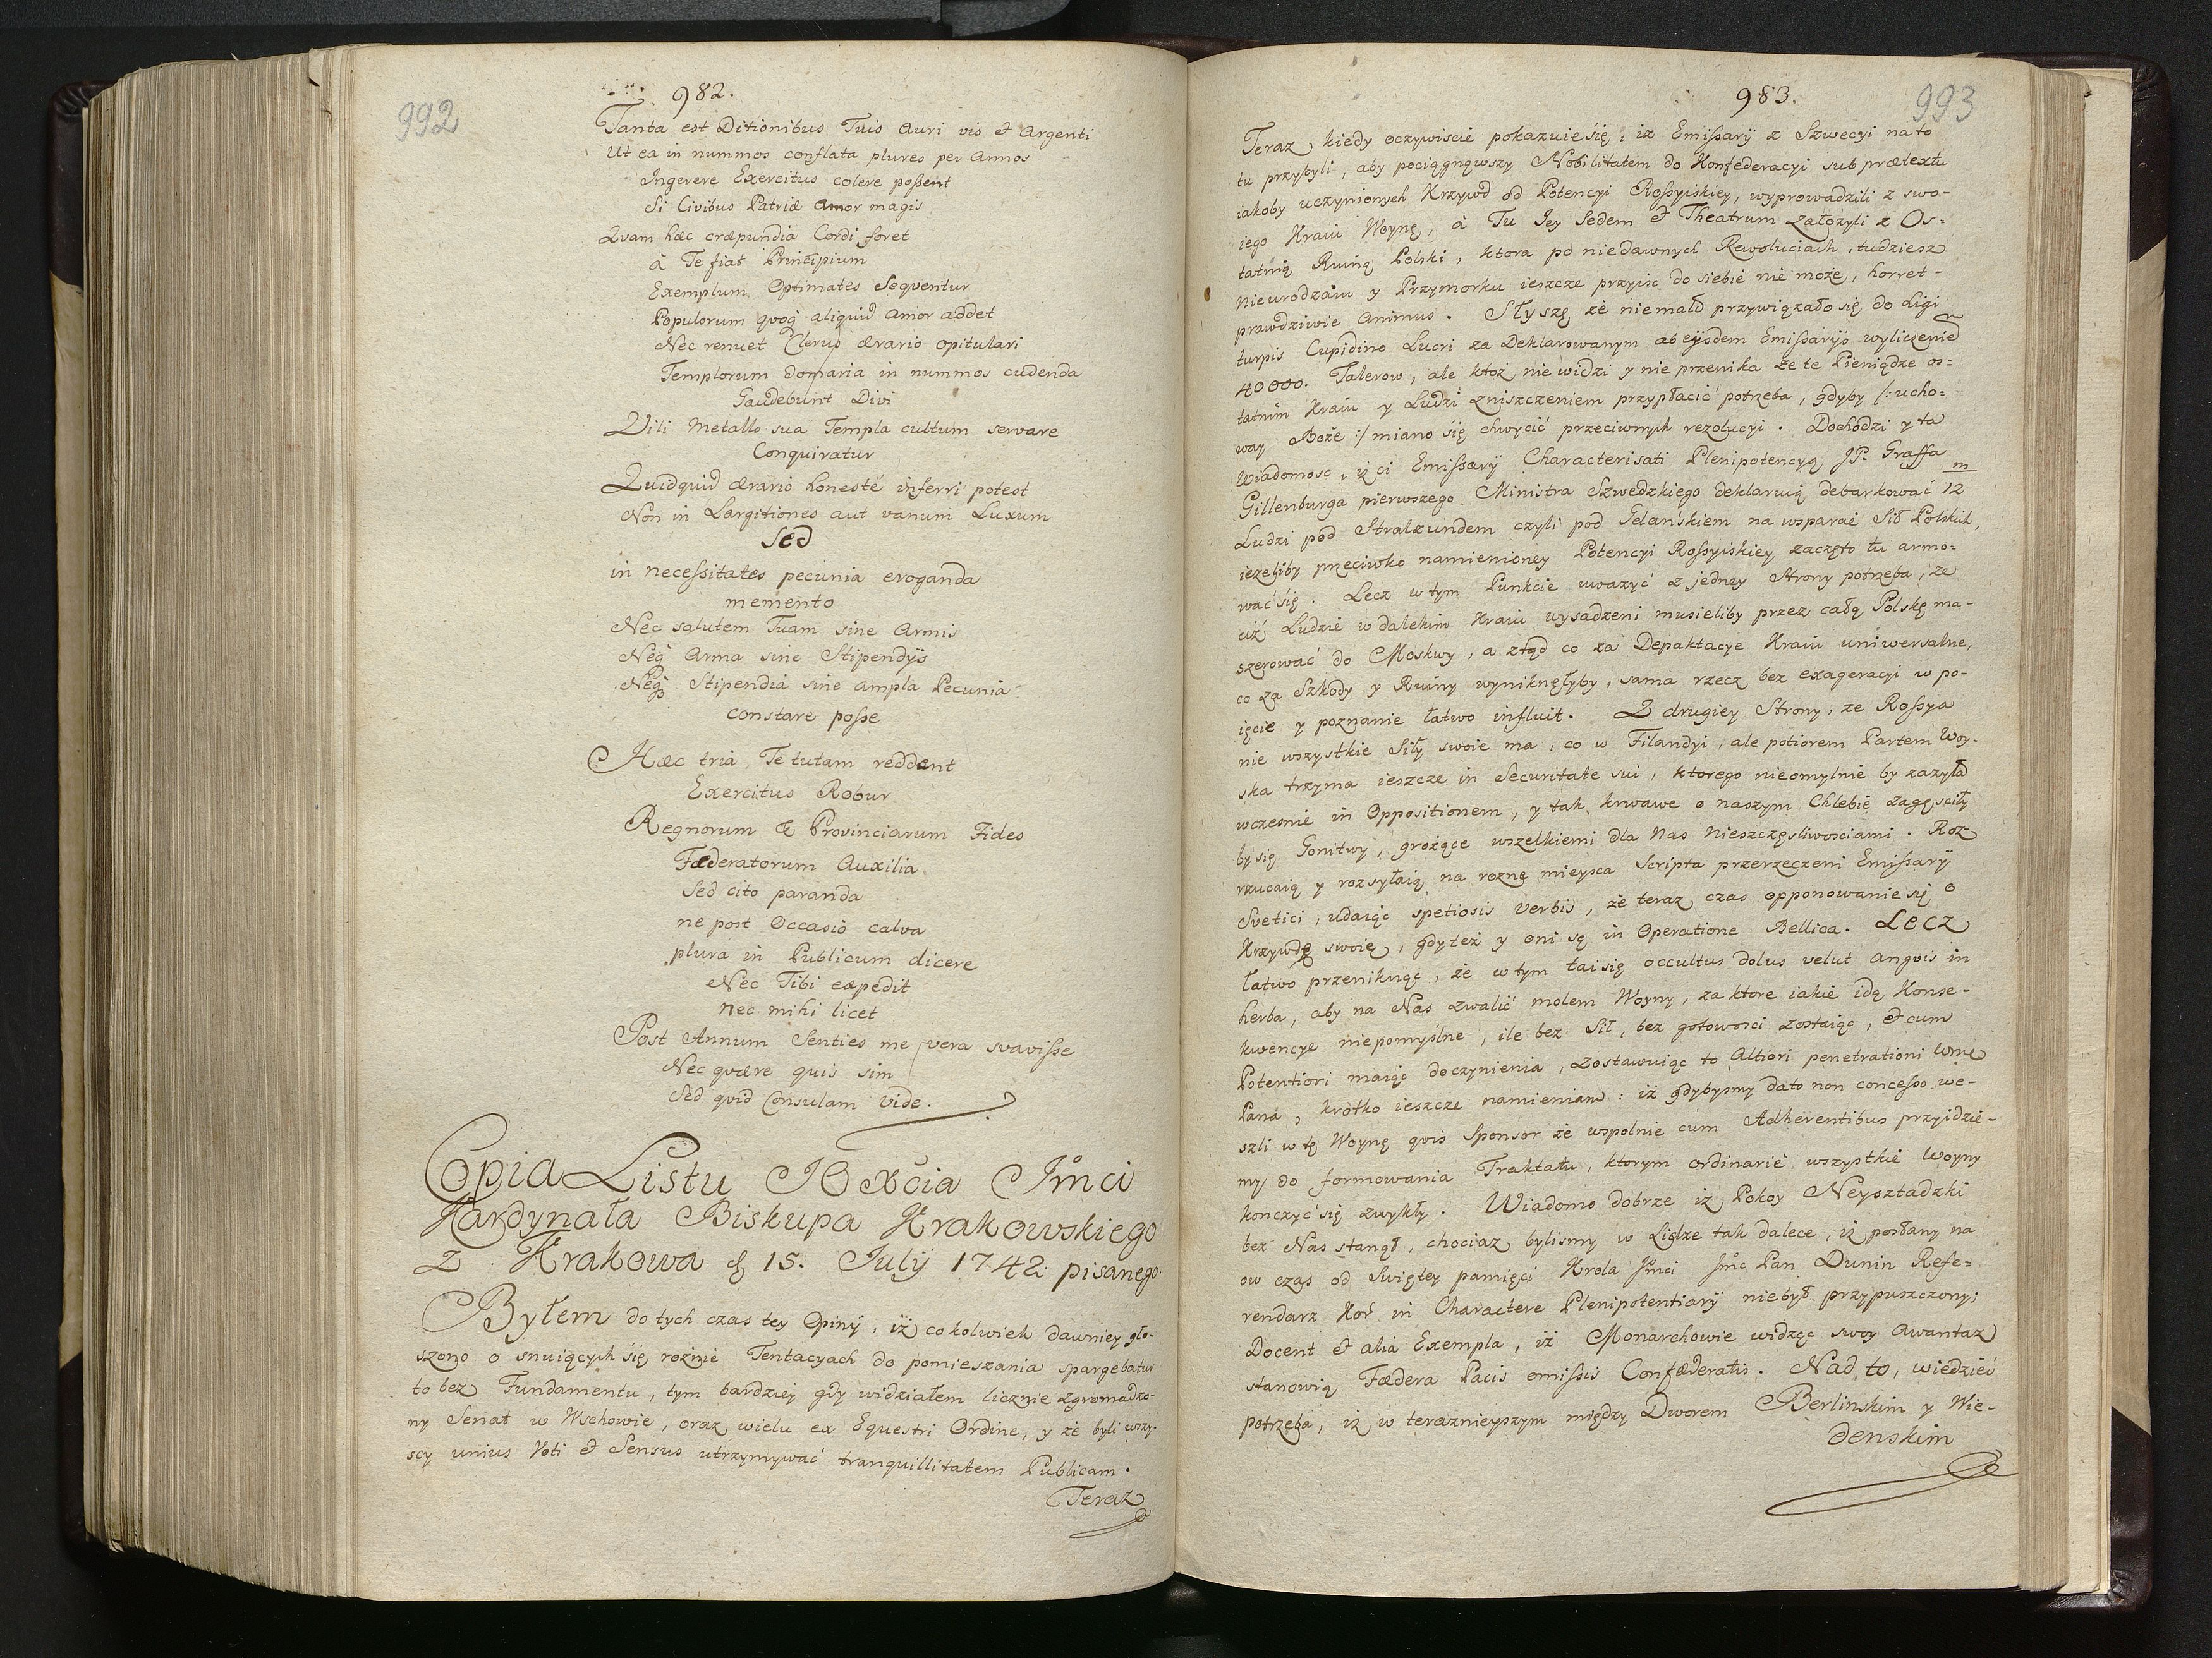 982.
992
Tanta est Ditionibus Tuis auri vis et Argenti
Ut ea in nummos conflata plures per Annos
Ingerere Exercitus colere poßent
Si Civibus Patriæ amor magis
Qvam hæc cræpundia Cordi foret
à Te fiat Principium
Exemplum Optimates Seqventur
Populorum qvoq aliquid amor addet
Nec renuet Clerus ærario opitulari
Templorum donaria in nummos cudenda
Gaudebunt Divi
Vili metallo sua Templa cultum servare
Conquiratur
Quidquid ærario honesté inferri potest
Non in Largitiones aut vanum Luxum
Sed
in necessitates pecunia eroganda
memento
Nec salutem Tuam sine Armis
Neq Arma sine Stipendijs
Neq Stipendia sine ampla Pecunia
constare poße
Hæc tria Te tutam reddent
Exercitus Robur
Regnorum & Provinciarum Fides
Fæderatorum Auxilia
Sed cito paranda
ne post Occasio calva
plura in Publicum dicere
Nec Tibi expedit
nec mihi licet
Post Annum Senties me vera svavisse
Nec qvære quis sim
Sed qvid Consulam vide.
Copia Listu JO Xcia Jmci
Kardynała Biskupa Krakowskiego
z Krakowa d 15. Julÿ 1742 pisanego.
Byłem do tych czas tey Opinÿ, iż cokolwiek dawniey gło-
szono o snuiących się rożnie Tentacyach do pomieszania spargebatur
to bez Fundamentu, tym bardziey gdy widziałem licznie zgromadzo-
ny Senat w Wschowie, oraz wielu ex Equestri Ordine, y że byli wszy-
scy unius Voti et Sensus utrzymywać tranquillitatem Publicam.
Teraz
983.
993
Teraz kiedy oczywiscie pokazuie się, iż Emißarÿ z Szwecyi na to
tu przybyli, aby pociągnąwszy Nobilitatem do Konfederacyi sub prætextu
iakoby uczynionych Krzywd od Potencyi Roßyiskiey, wyprowadzili z swo-
iego Kraiu Woynę, à Tu Jey Sedem et Theatrum założyli z Os-
tatnią Ruiną Polski, ktora po niedawnych Rewoluciach, tudziesz
Nieurodzaiu y Przymorku ieszcze przyisc do siebie nie może, horret
prawdziwie animus. Słyszę że niemało przywiązało się do Ligi
turpis Cupidine Lucri za Deklarowanym ab eÿsdem Emißarÿs wyliczenie
40000. Talerow, ale ktoż nie widzi y nie przenika że te Pieniądze os-
tatnim Kraiu y Ludzi zniszczeniem przypłacić potrzeba, gdyby /: ucho-
way Boże :/ miano się chwycić przeciwnych rezolucyi. Dochodzi y ta
Wiadomosc, iż ci Emißarÿ Characterisati Plenipotencyą JP. Graffa
Gillenburga pierwszego Ministra Szwedzkiego deklaruią debarkować 12 m
Ludzi pod Stralzundem czyli pod Gdańskiem na wsparcie Sił Polskich,
iezeliby przeciwko namienioney Potencyi Roßyiskiey zaczęto tu armo-
wać się. Lecz w tym Punkcie uważyć z jedney Strony potrzeba, że
ciż Ludzie w dalekim Kraiu wysadzeni musieliby przez całą Polskę ma-
szerować do Moskwy, a ztąd co za Depaktacye Kraiu uniwersalne,
co za Szkody y Ruiny wyniknęłyby, sama rzecz bez exageracyi w po-
ięcie y poznanie łatwo influit. Z drugiey Strony, że Roßya
nie wszystkie Siły swoie ma, co w Filandyi, ale potiorem Partem Woy-
ska trzyma ieszcze in Securitate sui, ktorego nieomylnie by zazyła
wczesnie in Oppositionem, y tak krwawe o naszym Chlebie zagęsciły
by się Gonitwy, grożące wszelkiemi dla Nas Nieszczęsliwosciami. Roz-
rzucaią y rozsyłaią na rozne mieysca Scripta przerzeczeni Emißarÿ
Svetici, udaiąc spetiosis verbis, że teraz czas opponowanie się o
Krzywdę swoię, gdyteż y oni są in Operatione Bellica. Lecz
łatwo przeniknąć, że w tym tai się occultus dolus velut angvis in
herba, aby na Nas zwalić molem Woyny, za ktore iakie idą Konse-
kwencye niepomyślne, ile bez Sił, bez gotowosci zostaiąc, et cum
Potentiori maiąc do czynienia, zostawuiąc to Altiori penetrationi Wme
Pana, krotko ieszcze namieniam: iż gdybysmy dato non conceßo we-
szli w tę Woynę qvis Sponsor że wspolnie cum Adherentibus przyidzie-
my do formowania Traktatu, ktorym ordinarie wszystkie Woyny
konczyć się zwykły. Wiadomo dobrze iż Pokoy Neysztadzki
bez Nas stanął, chociaz bylismy w Lidze tak dalece, iż posłany na
ow czas od Swiętey pamięci Krola Jmci Jmc Pan Dunin Refe-
rendarz Kor. in Charactere Plenipotentiarÿ niebył przypuszczony;
Docent et alia Exempla, iż Monarchowie widząc swoy Awantaz
stanowią Fædera Pacis omißis Confæderatis. Nad to, wiedzieć
potrzeba, iż w teraznieyszym między Dworem Berlinskim y Wie-
denskim